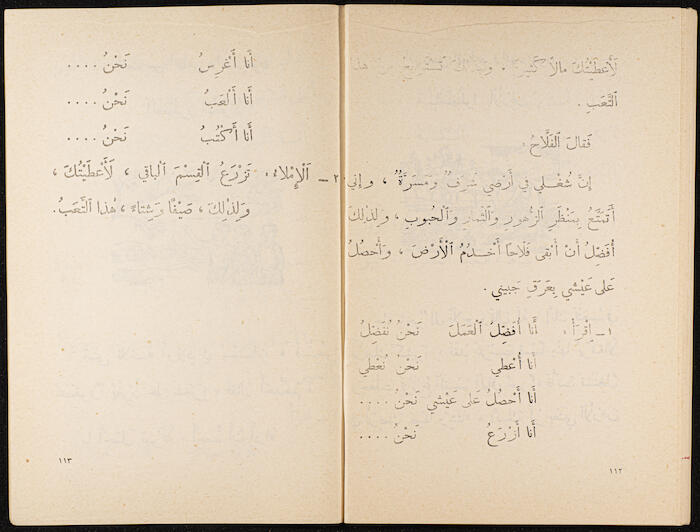 لَأَعْطَيْتُكَ مالاً كَثيراً . وَبِذٰلِكَ تَسْتَريحُ مِنْ هٰذا
التَّعَبِ .
فَقالَ الفَلّاحُ :
إِنَّ شُغْلي في أَرْضي شَرَفٌ وَمَسَرَّةٌ ، وإني
أَتَمَتَّعُ بِمَنْظَرِ الزُّهورِ والثِّمارِ والْحُبوبِ ، ولِذٰلِكَ
أُفَضِّلُ أَنْ أَبْقى فَلّاحاً أَخْدُمُ الْأَرْضَ ، وَأَحْصُلُ
عَلى عَيْشي بِعَرَقِ جَبيني .
١ – إِقْرَأْ : أَنا أُفَضِّلُ الْعَمَلَ نَحْنُ نُفَضِّلُ
أَنا أُعْطي نَحْنُ نُعْطي
أَنا أَحْصُلُ عَلى عَيْشي نَحْنُ ....
أَنا أَزْرَعُ نَحْنُ ....
١١٢
أَنا أَغْرِسُ نَحْنُ ....
أَنا أَلْعَبُ نَحْنُ ....
أَنا أَكْتُبُ نَحْنُ ....
٢ – الْإِمْلاء: نَزْرَعُ القِسْمَ الباقي ، لَأَعْطَيْتُكَ ،
ولِذٰلِكَ ، صَيْفًا وَشِتاءً ، هٰذا التَّعَبُ.
١١٣